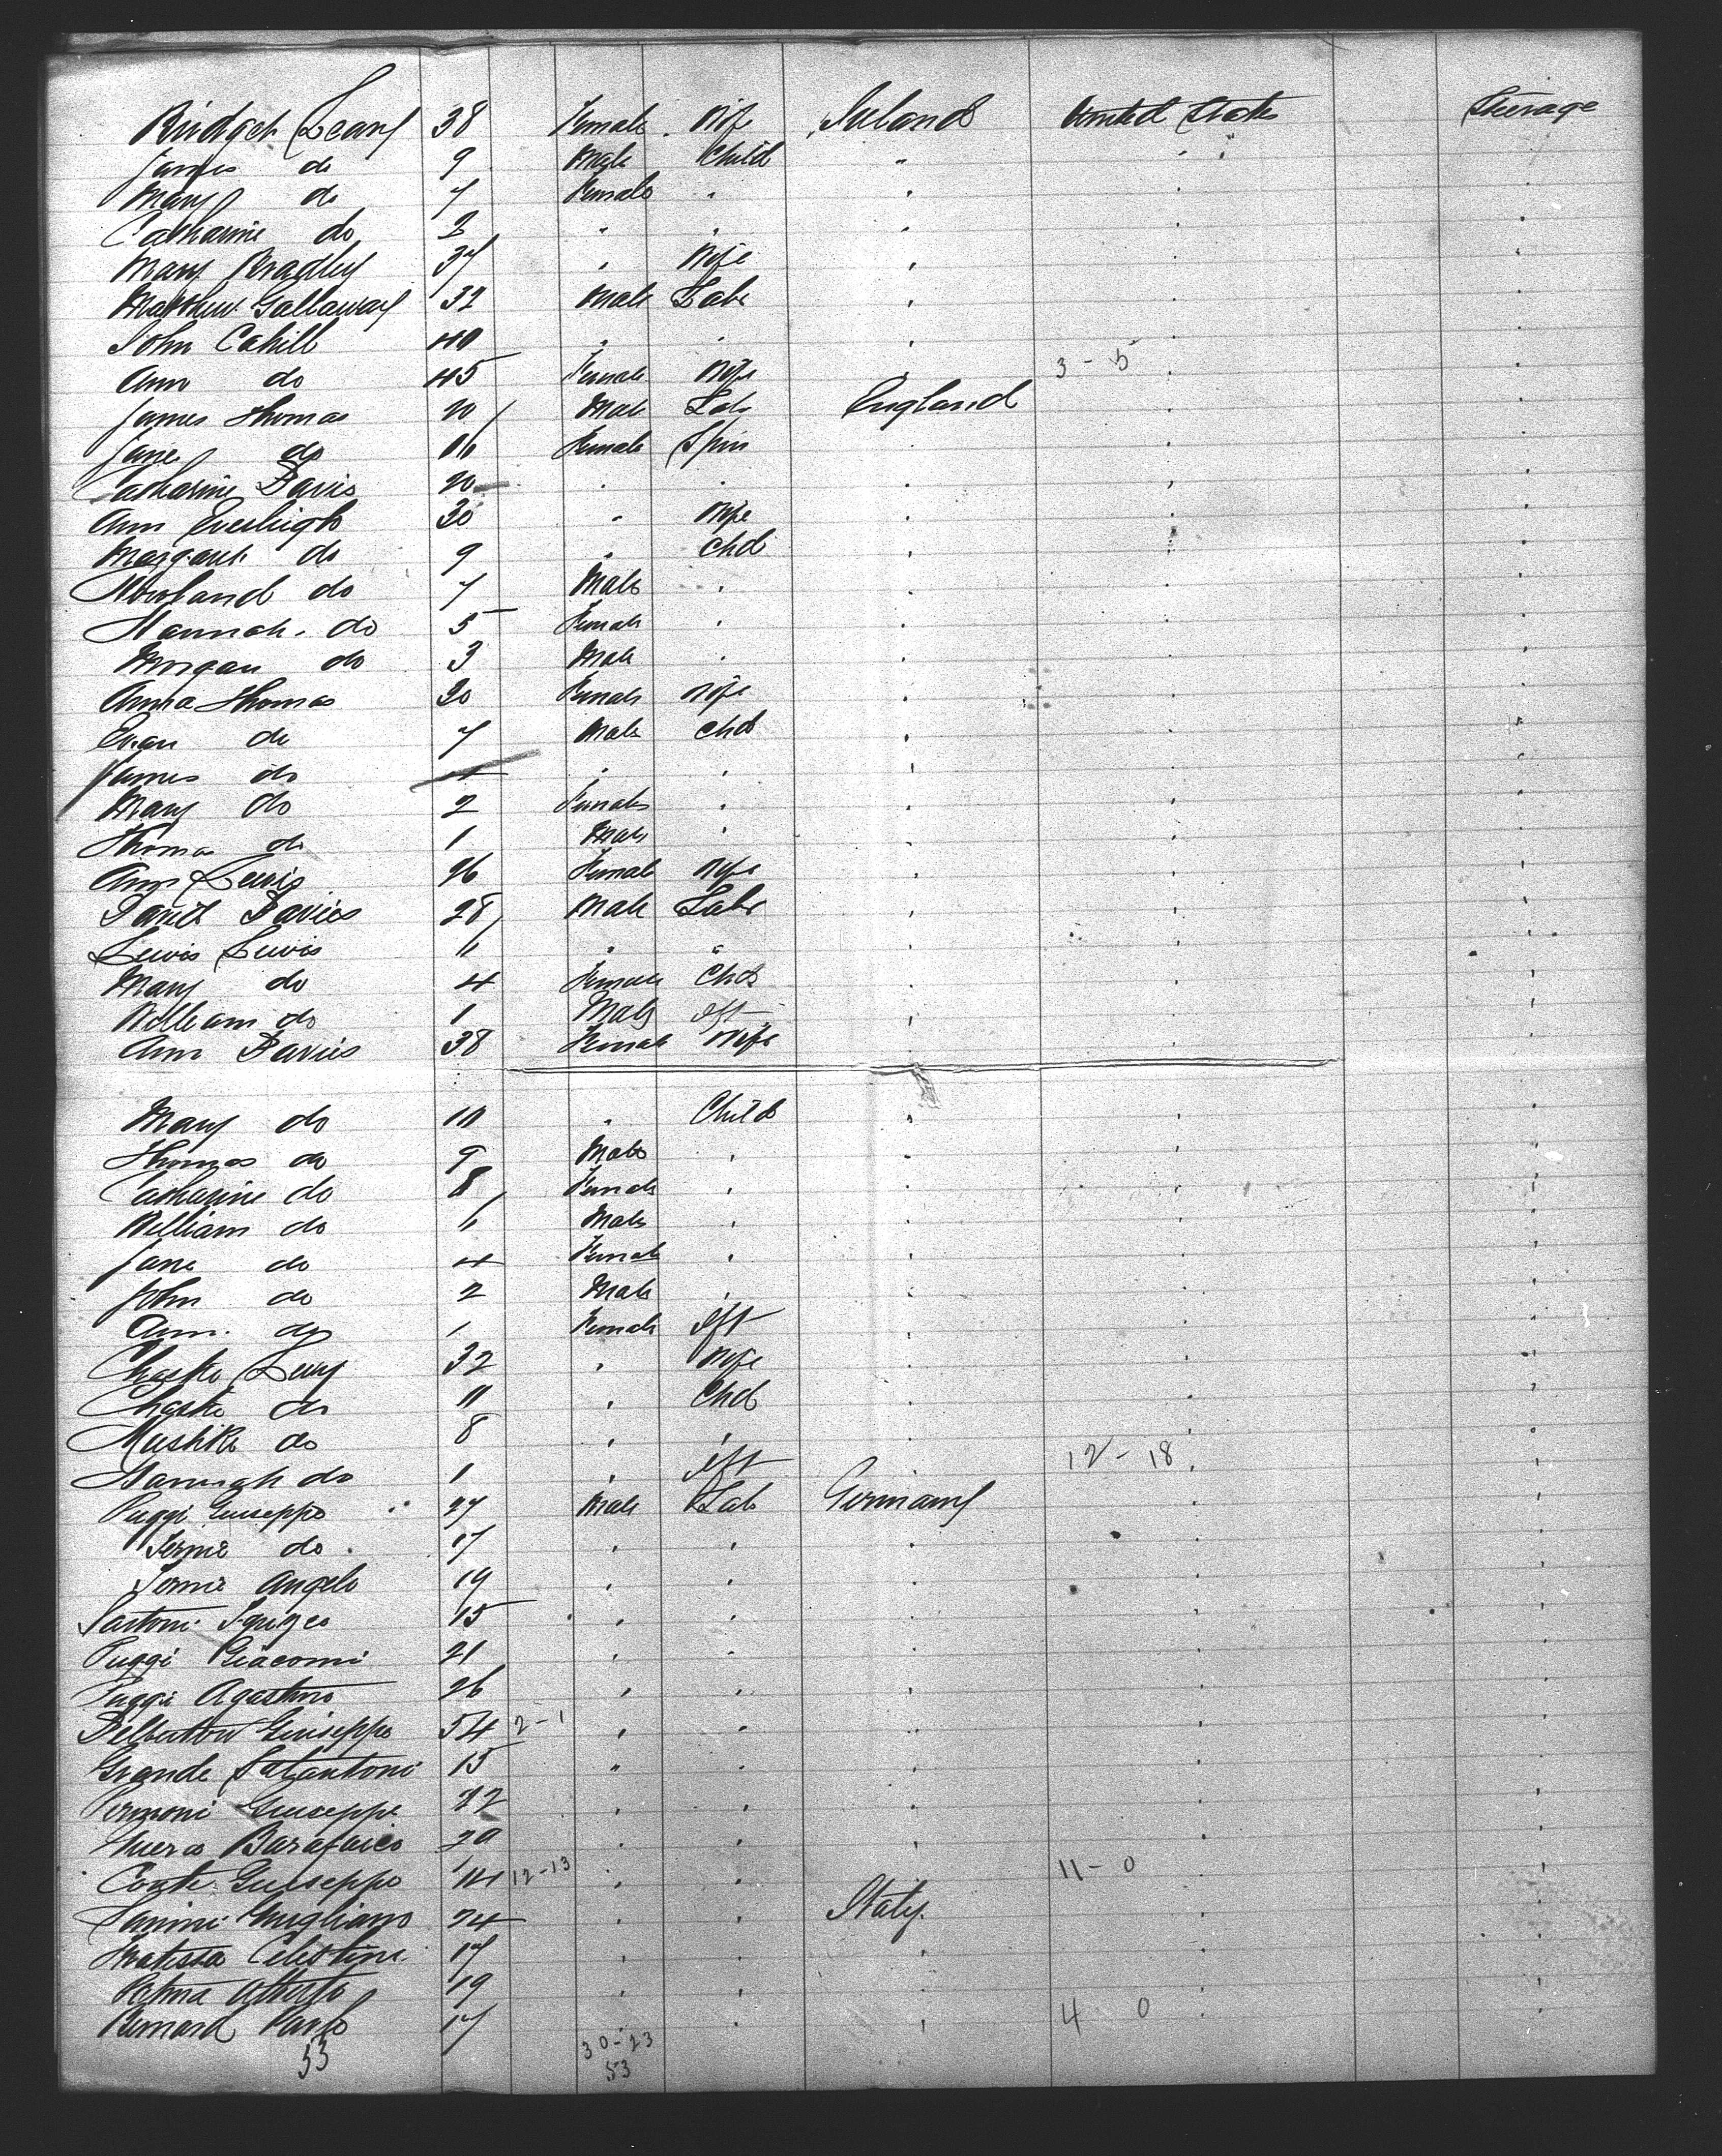 Bridget Leary 38 Female Wife Ireland United States Steerage
James do 9 Male Child "
Mary do 7 Female "
Catharine do 2 " " "
Mary Bradley 37 " Wife "
Matthew Gallaway 32 Male Labr "
John Cahill 40 " " "
Ann do 45 Female Wife 3 - 5
James Thomas 20 Male Lab England
Jane do 16 Female Spin
Catharine Davis 20 " " "
Ann Eveleigh 30 " Wife "
Margaret do 9 " Chd "
Rowland do 7 Male " "
Hannah do 5 Female " "
Morgan do 3 Male " "
Anna Thomas 30 Female Wife "
Evan do 7 Male Chd "
James do 4 " " "
Mary do 2 Female " "
Thomas do 1 Male " "
Ann Lewis 26 Female Wife "
David Davies 28 Male Labr "
Lewis Lewis 6 " " "
Mary do 4 Female Chd "
William do 1 Male Ift "
Ann Davies 38 Female Wife "
Mary do 10 " Child "
Thomas do 9 Male " "
Catharine do 8 Female " "
William do 6 Male " "
Jane do 4 Female " "
John do 2 Male " "
Ann do 1 Female Ift "
Chaske Levy 32 " Wife "
Chaske do 11 " Chd "
Mushke do 8 " " "
do 1 " Ift 12 - 18
Puggi Giuseppo 27 Male Lab Germany
do 17 " " "
Angelo 19 " " "
Sartoni 15 " " "
Puggi Giacomi 21 " " "
Puggi Agostino 26 " " "
Giuseppo 54 2-1 " " "
Grande 15 " " "
Giuseppe 22 " " "
20 " " "
Conte Giuseppo 14 12-13 " " 11 - 0
Giugliano 24 " " Italy.
Celestine 17 " " "
Palma Alberto 19 " " "
Bernard Carlo 17 " " " 4 0
53 30-23
53